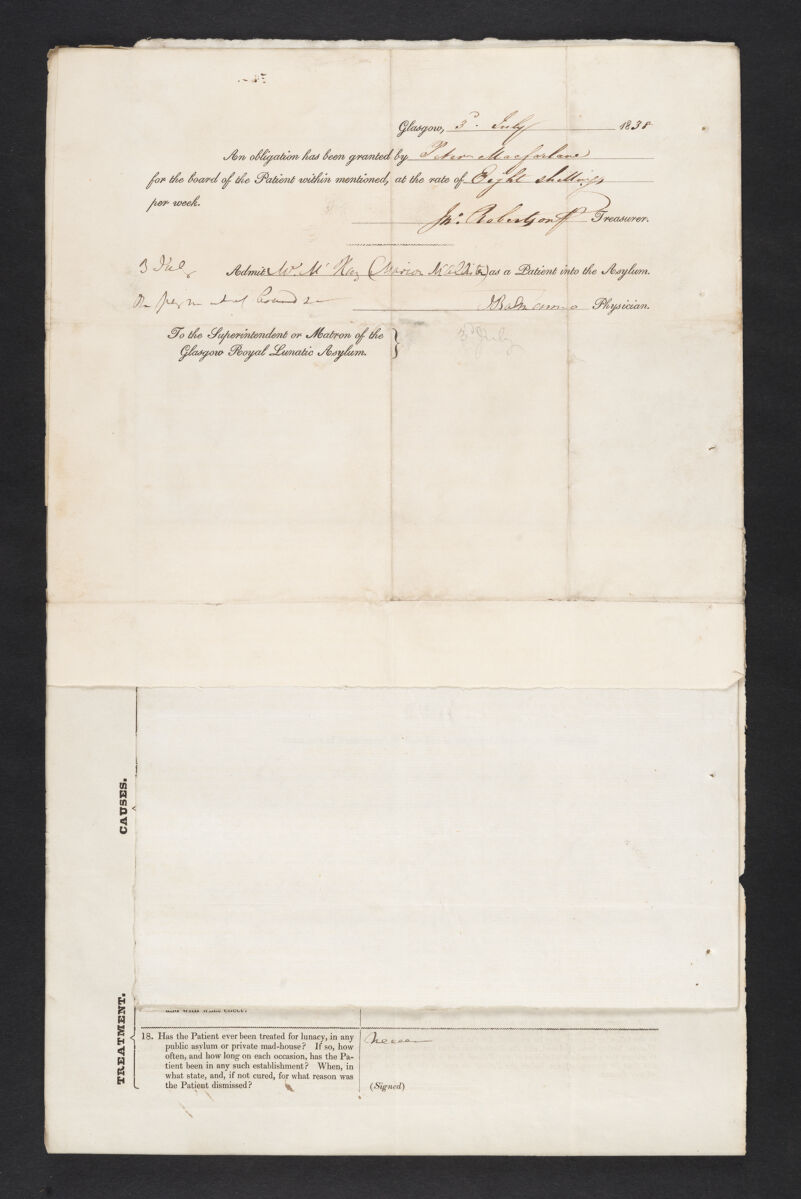 Glasgow, 3d. July 1838
An obligation has been granted by Peter Macfarlane
for the board of the Patient within mentioned, at the rate of Eight shillings
per week.
Jno. Robertson Treasurer.
3 July Admit Mrs. McKay (Marion) as a Patient into the Asylum.
On payment of board Physician.
To the Superintendent or Matron of the
Glasgow Royal Lunatic Asylum.
3d July
CAUSES.
TREATMENT.
and with what effect?
18. Has the Patient ever been treated for lunacy, in any
public asylum or private mad-house? If so, how
often, and how long on each occasion, has the Pa-
tient been in any such establishment? When, in
what state, and, if not cured, for what reason was
the Patient dismissed?
never
(Signed)